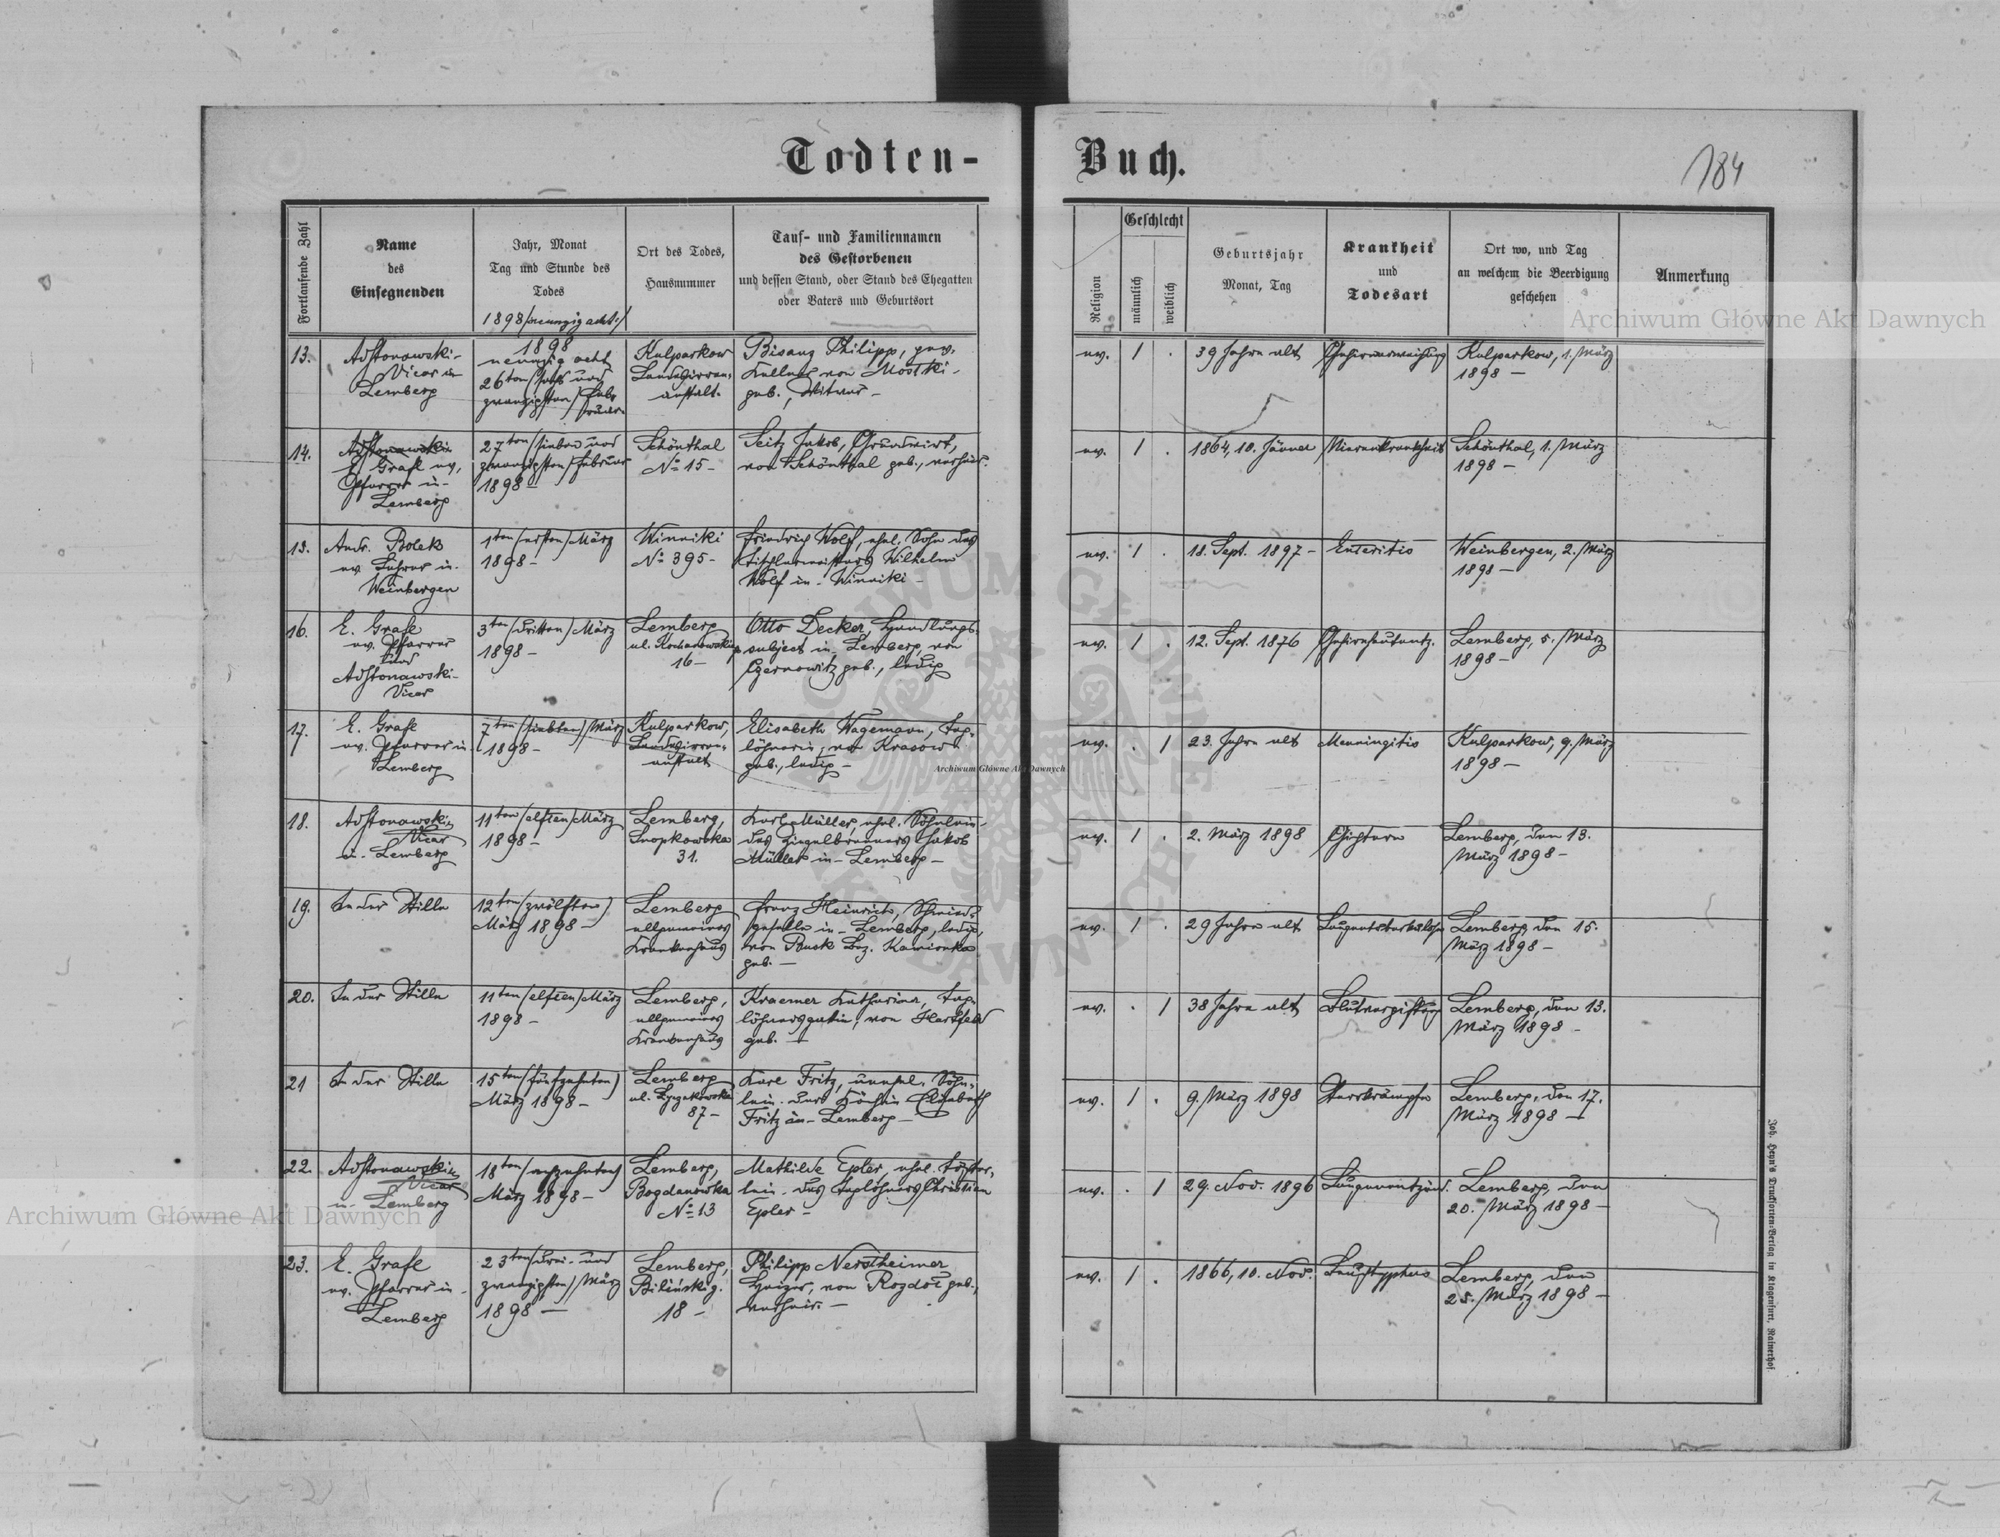 Todten-
Buch.
184
Fortlaufende Zahl
Name
des
Einsegnenden
Jahr, Monat
Tag und Stunde des
Todes
1898/neunzig acht/
Ort des Todes,
Hausnummer
Tauf- und Familiennamen
des Gestorbenen
und dessen Stand, oder Stand des Ehegatten
oder Vaters und Geburtsort
Religion
Geschlecht
männlich
weiblich
Geburtsjahr
Monat, Tag
Krankheit
und
Todesart
Ort wo, und Tag
an welchem die Beerdigung
geschehen
Anmerkung
13.
Vicar in
Lemberg
1898
neunzig acht
26ten/sechs und
zwanzigsten/Febr
ruar.
Kulparkow
Landesirren-
anstalt.
Bisanz Philipp, gew.
von Mostki
geb., Witwer
ev. 1 .
39 Jahre alt
Gehirnerweichung
Kulparkow, 1. März
1898 —
14.
E. Grafe ev.
Pfarrer in
Lemberg
27ten/sieben und
zwanzigsten/Februar
1898 —
Schönthal
No 15 —
Seitz Jakob, Grundwirt,
von Schönthal geb., verheir.
ev. 1 .
1864, 10. Jänner
Nierenkrankheit
Schönthal, 1. März
1898 —
15.
Andr. Bolek
ev. Lehrer in
Weinbergen
1ten/ersten/März
1898 —
Winniki
No 395 —
Friedrich Wolf, ehel. Sohn des
Tischlermeisters Wilhelm
Wolf in Winniki —
ev. 1 .
18. Sept. 1897 —
Enteritis
Weinbergen, 2. März
1898 —
16.
E. Grafe
ev. Pfarrer
und
Vicar
3ten/dritten/März
1898 —
Lemberg
ul. Kochanowskiego
16 —
Otto Decker, Handlungs-
subject in Lemberg, von
Czernowitz geb., ledig
ev. 1 .
12. Sept. 1876
Gehirnhautentz.
Lemberg, 5. März
1898 —
17.
E. Grafe
ev. Pfarrer in
Lemberg
7ten/siebten/März
1898 —
Kulparkow,
Landesirren-
anstalt
Elisabeth Wagemann, Tag-
löhnerin, von Krasow
geb., ledig —
ev. . 1
23. Jahre alt
Meningitis
Kulparkow, 9. März
1898 —
18.
Vicar
in Lemberg
11ten/elften/März
1898 —
Lemberg,
Snopkowska
31.
Karl Müller, ehel. Söhnlein
des Ziegelbrenners Jakob
Müller in Lemberg —
ev. 1 .
2. März 1898
Gichtern
Lemberg, den 13.
März 1898 —
19.
In der Stille
12ten/zwölften/
März 1898 —
Lemberg
allgemeines
Krankenhaus
Franz Heinrich, Schmied-
geselle in Lemberg, ledig,
von Busk Bez. Kamionka
geb. —
ev. 1 .
29 Jahre alt
Lungentuberkulose
Lemberg, den 15.
März 1898 —
20.
In der Stille
11ten/elften/März
1898 —
Lemberg,
allgemeines
Krankenhaus
Kraemer Katharina, Tag-
löhnersgattin, von Hartfeld
geb. —
ev. . 1
38 Jahre alt
Blutvergiftung
Lemberg, den 13.
März 1898 —
21
In der Stille
15ten/fünfzehnten/
März 1898 —
Lemberg
ul. Łyczakowska
87 —
Karl Fritz, unehel. Söhn-
lein der Köchin Elisabeth
Fritz in Lemberg —
ev. 1 .
9. März 1898
Starrkrämpfe
Lemberg, den 17.
März 1898 —
22.
Vicar
in Lemberg
18ten/achzehnten/
März 1898 —
Lemberg,
Bogdanowka
No 13
Mathilde Epler, ehel. Töchter-
lein des Taglöhners Christian
Epler —
ev. . 1
29. Nov. 1896
Lungenentzünd.
Lemberg, den
20. März 1898 —
23.
E. Grafe
ev. Pfarrer in
Lemberg
23ten/drei und
zwanzigsten/März
1898 —
Lemberg,
Bilińskig.
18 —
Philipp Nerstheimer
Heizer, von Rozdół geb.,
verheir. —
ev. 1 .
1866, 10. Nov.
Bauchtyphus
Lemberg, den
25. März 1898 —
Joh. Heyn's Drucksorten-Verlag in Klagenfurt, Rainerhof.
Archiwum Główne Akt Dawnych
Archiwum Główne Akt Dawnych
Archiwum Główne Akt Dawnych
ARCHIWUM GŁÓWNE AKT DAWNYCH